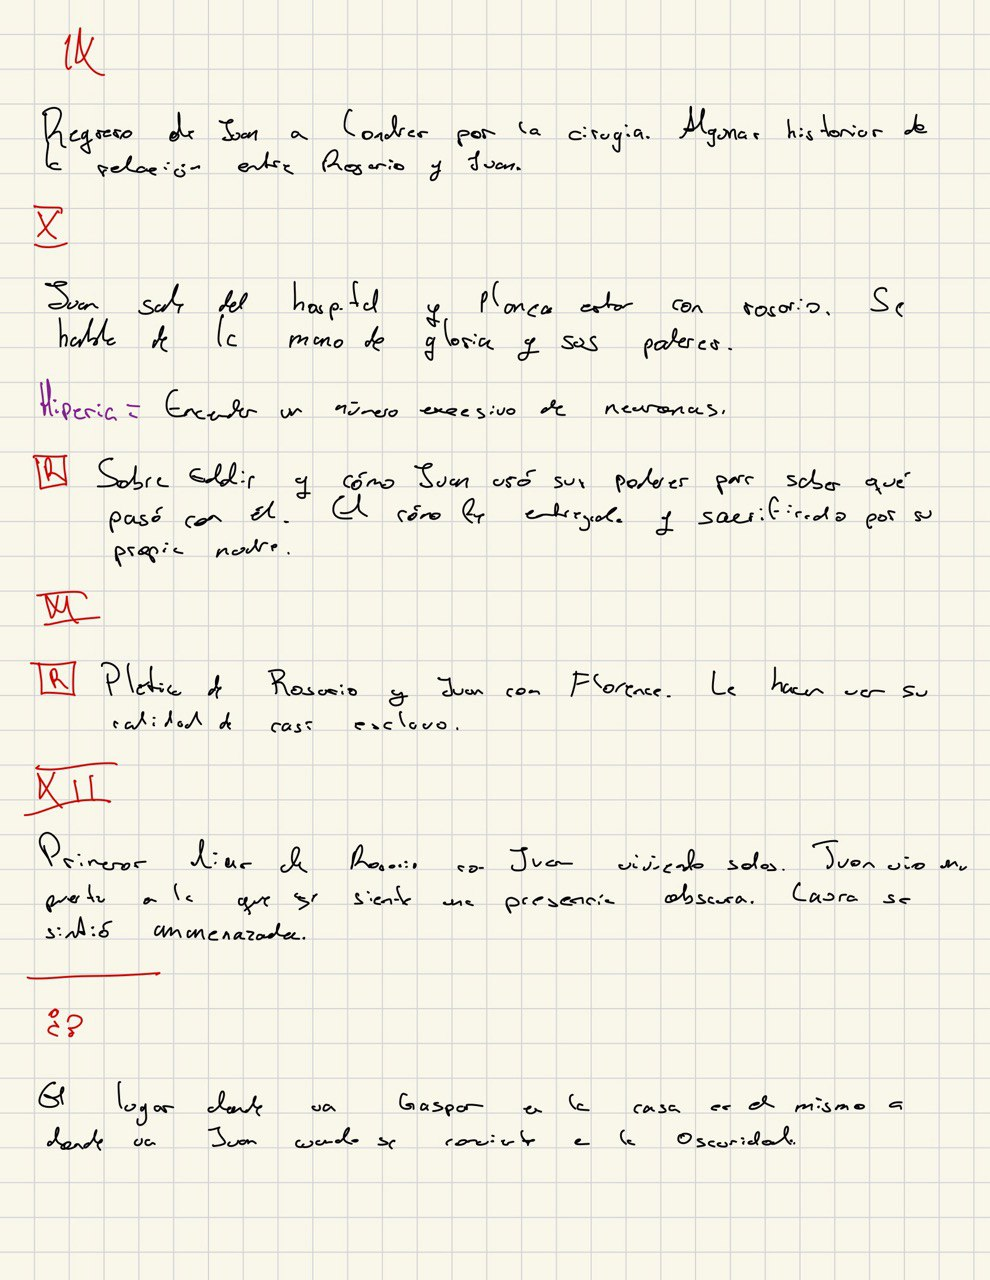 IX
Regreso de Juan a Londres por la cirugia. Algunas historias de
la relación entre Rosario y Juan.
X
Juan sale del hospital y planea estar con rosario. Se
habla de la mano de gloria y sus poderes.
Hiperia = Encender un número excesivo de neuronas.
R Sobre Eddie y cómo Juan usó sus poderes para saber qué
pasó con él. El cómo fue entregado y sacrificado por su
propia madre.
XI
R Platica de Rosario y Juan con Florence. Le hacen ver su
calidad de casi esclavo.
XII
Primeros días de Rosario con Juan viviendo solos. Juan vio una
puerta a la que se siente una presencia obscura. Laura se
sintió ammenazada.
¿?
El lugar donde va Gaspar en la casa es el mismo a
donde va Juan cuando se convierte en la Oscuridad.